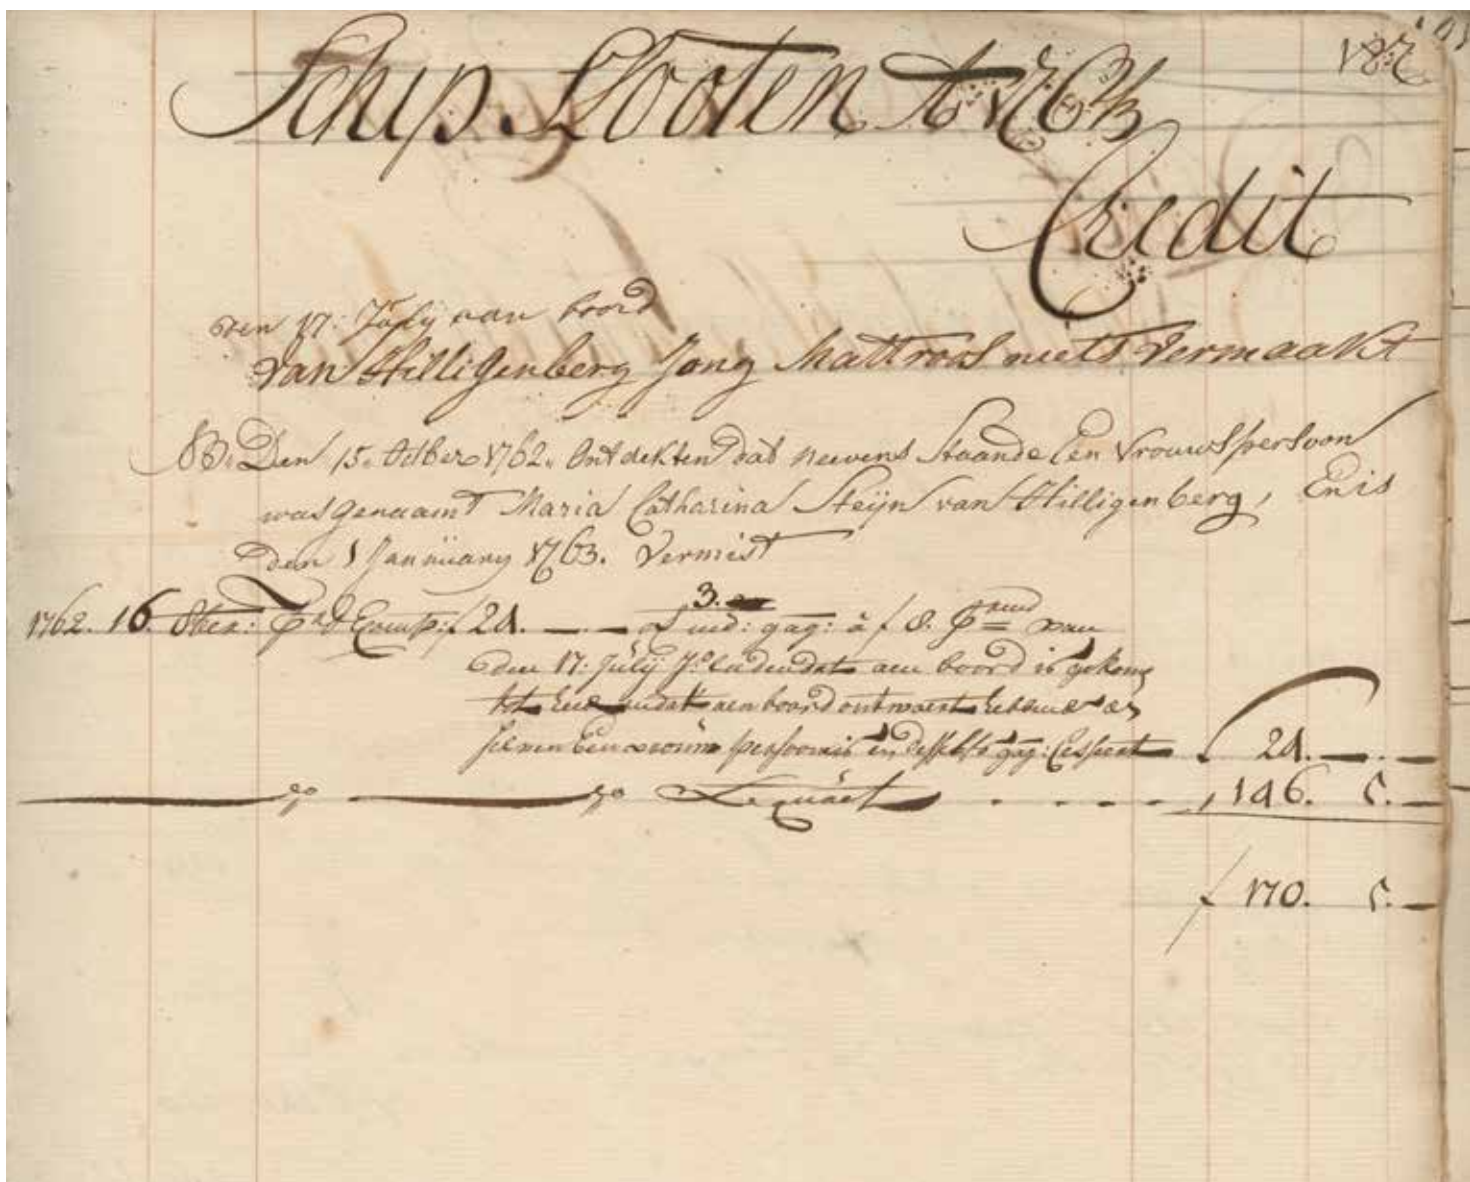 187
Schip Slooten Ao 1763
Credit
den 17: July van boord
van Hilligenberg Jong Mattroos niets vermaakt
NB. Den 15. October 1762. Ontdekten dat neevens Staande Een Vrouwspersoon
was genaamt Maria Catharina Steijn van Hilligenberg, En is
den 1 Januuary 1763. Vermist
3.
1762. 16. 8ber: Pr d'Comp: f 24. — . — md: gag: à f 8. Pr md van
den 17: July Jo: Leden dat aen boord is gekome
tot aen boord ontwaert hebbende
een vrouw persoon is en desselfs gag: Cesseert f 24. — . —
do do Requart . . . . , 146. 5. —
f 170. 5. —